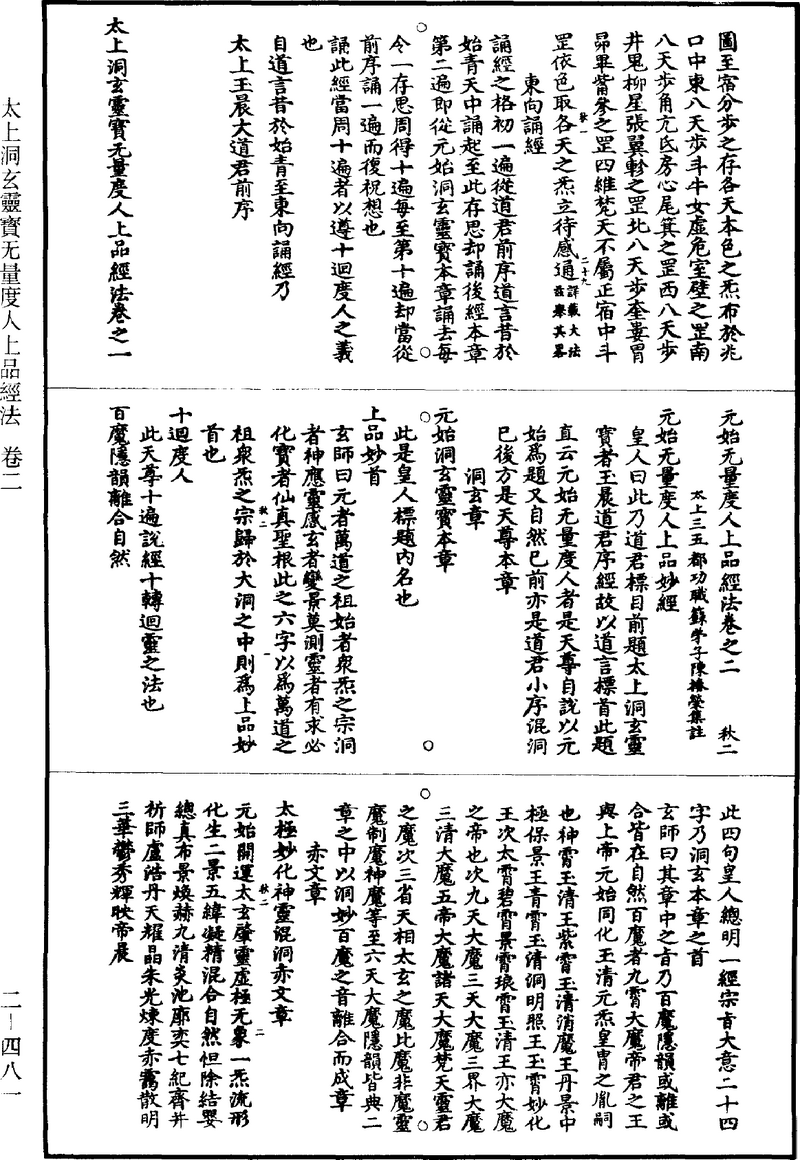 太上洞玄靈寶无量度人上品經法 卷二
二—四八一
圖至宿分步之存各天本色之炁布於兆
口中東八天步斗牛女虛危室壁之罡南
八天步角亢氐房心尾箕之罡西八天步
井鬼柳星張翼軫之罡北八天步奎婁胃
昴畢觜參之罡四維梵天不屬正宿中斗
罡依色取各天之炁立待感通詳載大法茲舉其畧
東向誦經
誦經之格初一遍從道君前序道言昔於
始青天中誦起至此存思却誦後經本章
第二遍即從元始洞玄靈寶本章誦去每
令一存思周得十遍每至第十遍却當從
前序誦一遍而復祝想也
誦此經當周十遍者以遵十迴度人之義
也
自道言昔於始青至東向誦經乃
太上玉晨大道君前序
太上洞玄靈寶无量度人上品經法卷之一
元始无量度人上品經法卷之二 秋二
太上三五都功職籙學子陳椿榮集註
元始无量度人上品妙經
皇人曰此乃道君標目前題太上洞玄靈
寶者玉晨道君序經故以道言標首此題
直云元始无量度人者是天尊自說以元
始為題又自然已前亦是道君小序混洞
已後方是天尊本章
洞玄章
元始洞玄靈寶本章
此是皇人標題內名也
上品妙首
玄師曰元者萬道之祖始者衆炁之宗洞
者神應靈感玄者變景莫測靈者有求必
化寶者仙真聖根此之六字以為萬道之
祖衆炁之宗歸於大洞之中則為上品妙
首也
十迴度人
此天尊十遍說經十轉迴靈之法也
百魔隱韻離合自然
此四句皇人總明一經宗旨大意二十四
字乃洞玄本章之首
玄師曰其章中之音乃百魔隱韻或離或
合皆在自然百魔者九霄大魔帝君之王
與上帝元始同化玉清元炁皇胄之胤嗣
也神霄玉清王紫霄玉清消魔王丹景中
極保景王青霄玉清洞明照王玉霄妙化
王次太霄碧霄景霄琅霄玉清王亦大魔
之帝也次九天大魔三天大魔三界大魔
三清大魔五帝大魔諸天大魔梵天靈君
之魔次三省天相太玄之魔比魔非魔靈
魔制魔神魔等至六天大魔隱韻皆典二
章之中以洞妙百魔之音離合而成章
赤文章
太極妙化神靈混洞赤文章
元始開運太玄肇靈虛極无象一炁流形
化生二景五緯凝精混合自然怛除結嬰
總真布景煥赫九清炎池廓奕七紀齊并
祈師盧浩丹天耀晶朱光煉度赤靄散明
三華鬱秀輝映帝晨